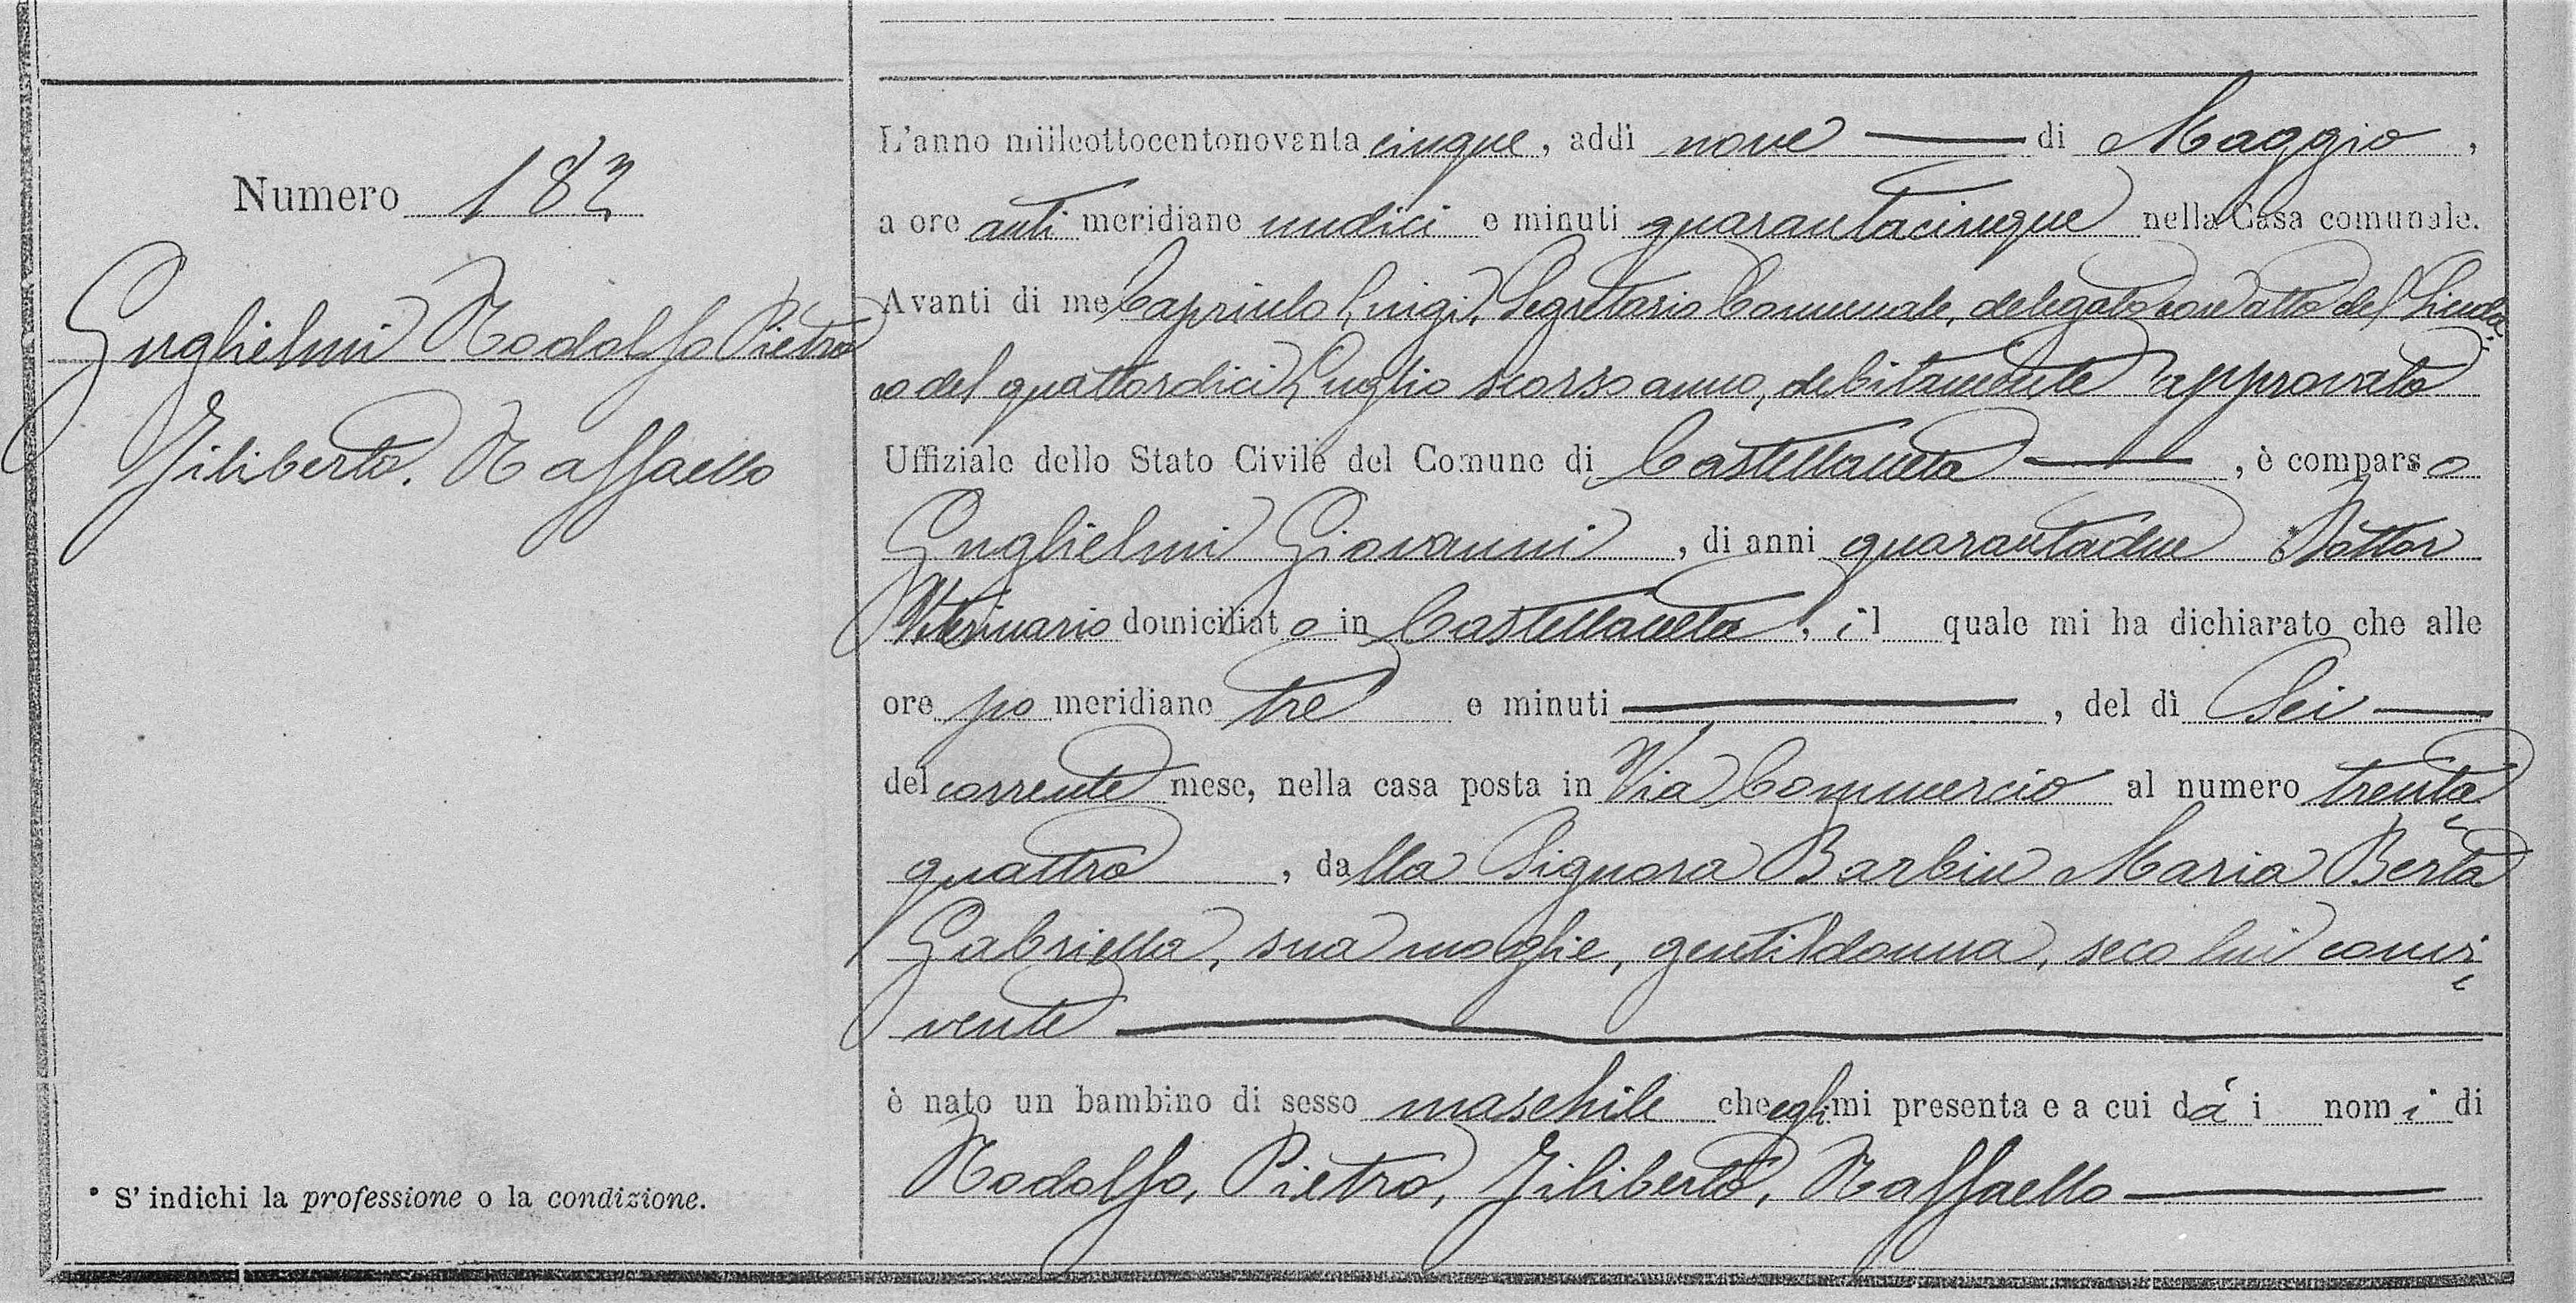 Numero 182
Guglielmi Rodolfo Pietro
Filiberto. Raffaello
* S' indichi la professione o la condizione.
L'anno milleottocentonovanta cinque, addì nove — di Maggio,
a ore anti meridiane undici e minuti quarantacinque nella Casa comunale.
Avanti di me Capriulo Luigi, Segretario Comunale, delegato con atto del Sinda-
co del quattordici Luglio scorso anno, debitamente approvato
Uffiziale dello Stato Civile del Comune di Castellaneta —, è comparso
Guglielmi Giovanni, di anni quarantadue * Dottor
Veterinario domiciliato in Castellaneta, il quale mi ha dichiarato che alle
ore po meridiane tre e minuti —, del dì Sei —
del corrente mese, nella casa posta in Via Commercio al numero trenta-
quattro, dalla Signora Barbin Maria Berta
Gabriella, sua moglie, gentildonna, seco lui convi-
vente —
è nato un bambino di sesso maschile che egli mi presenta e a cui dà i nomi di
Rodolfo, Pietro, Filiberto, Raffaello —